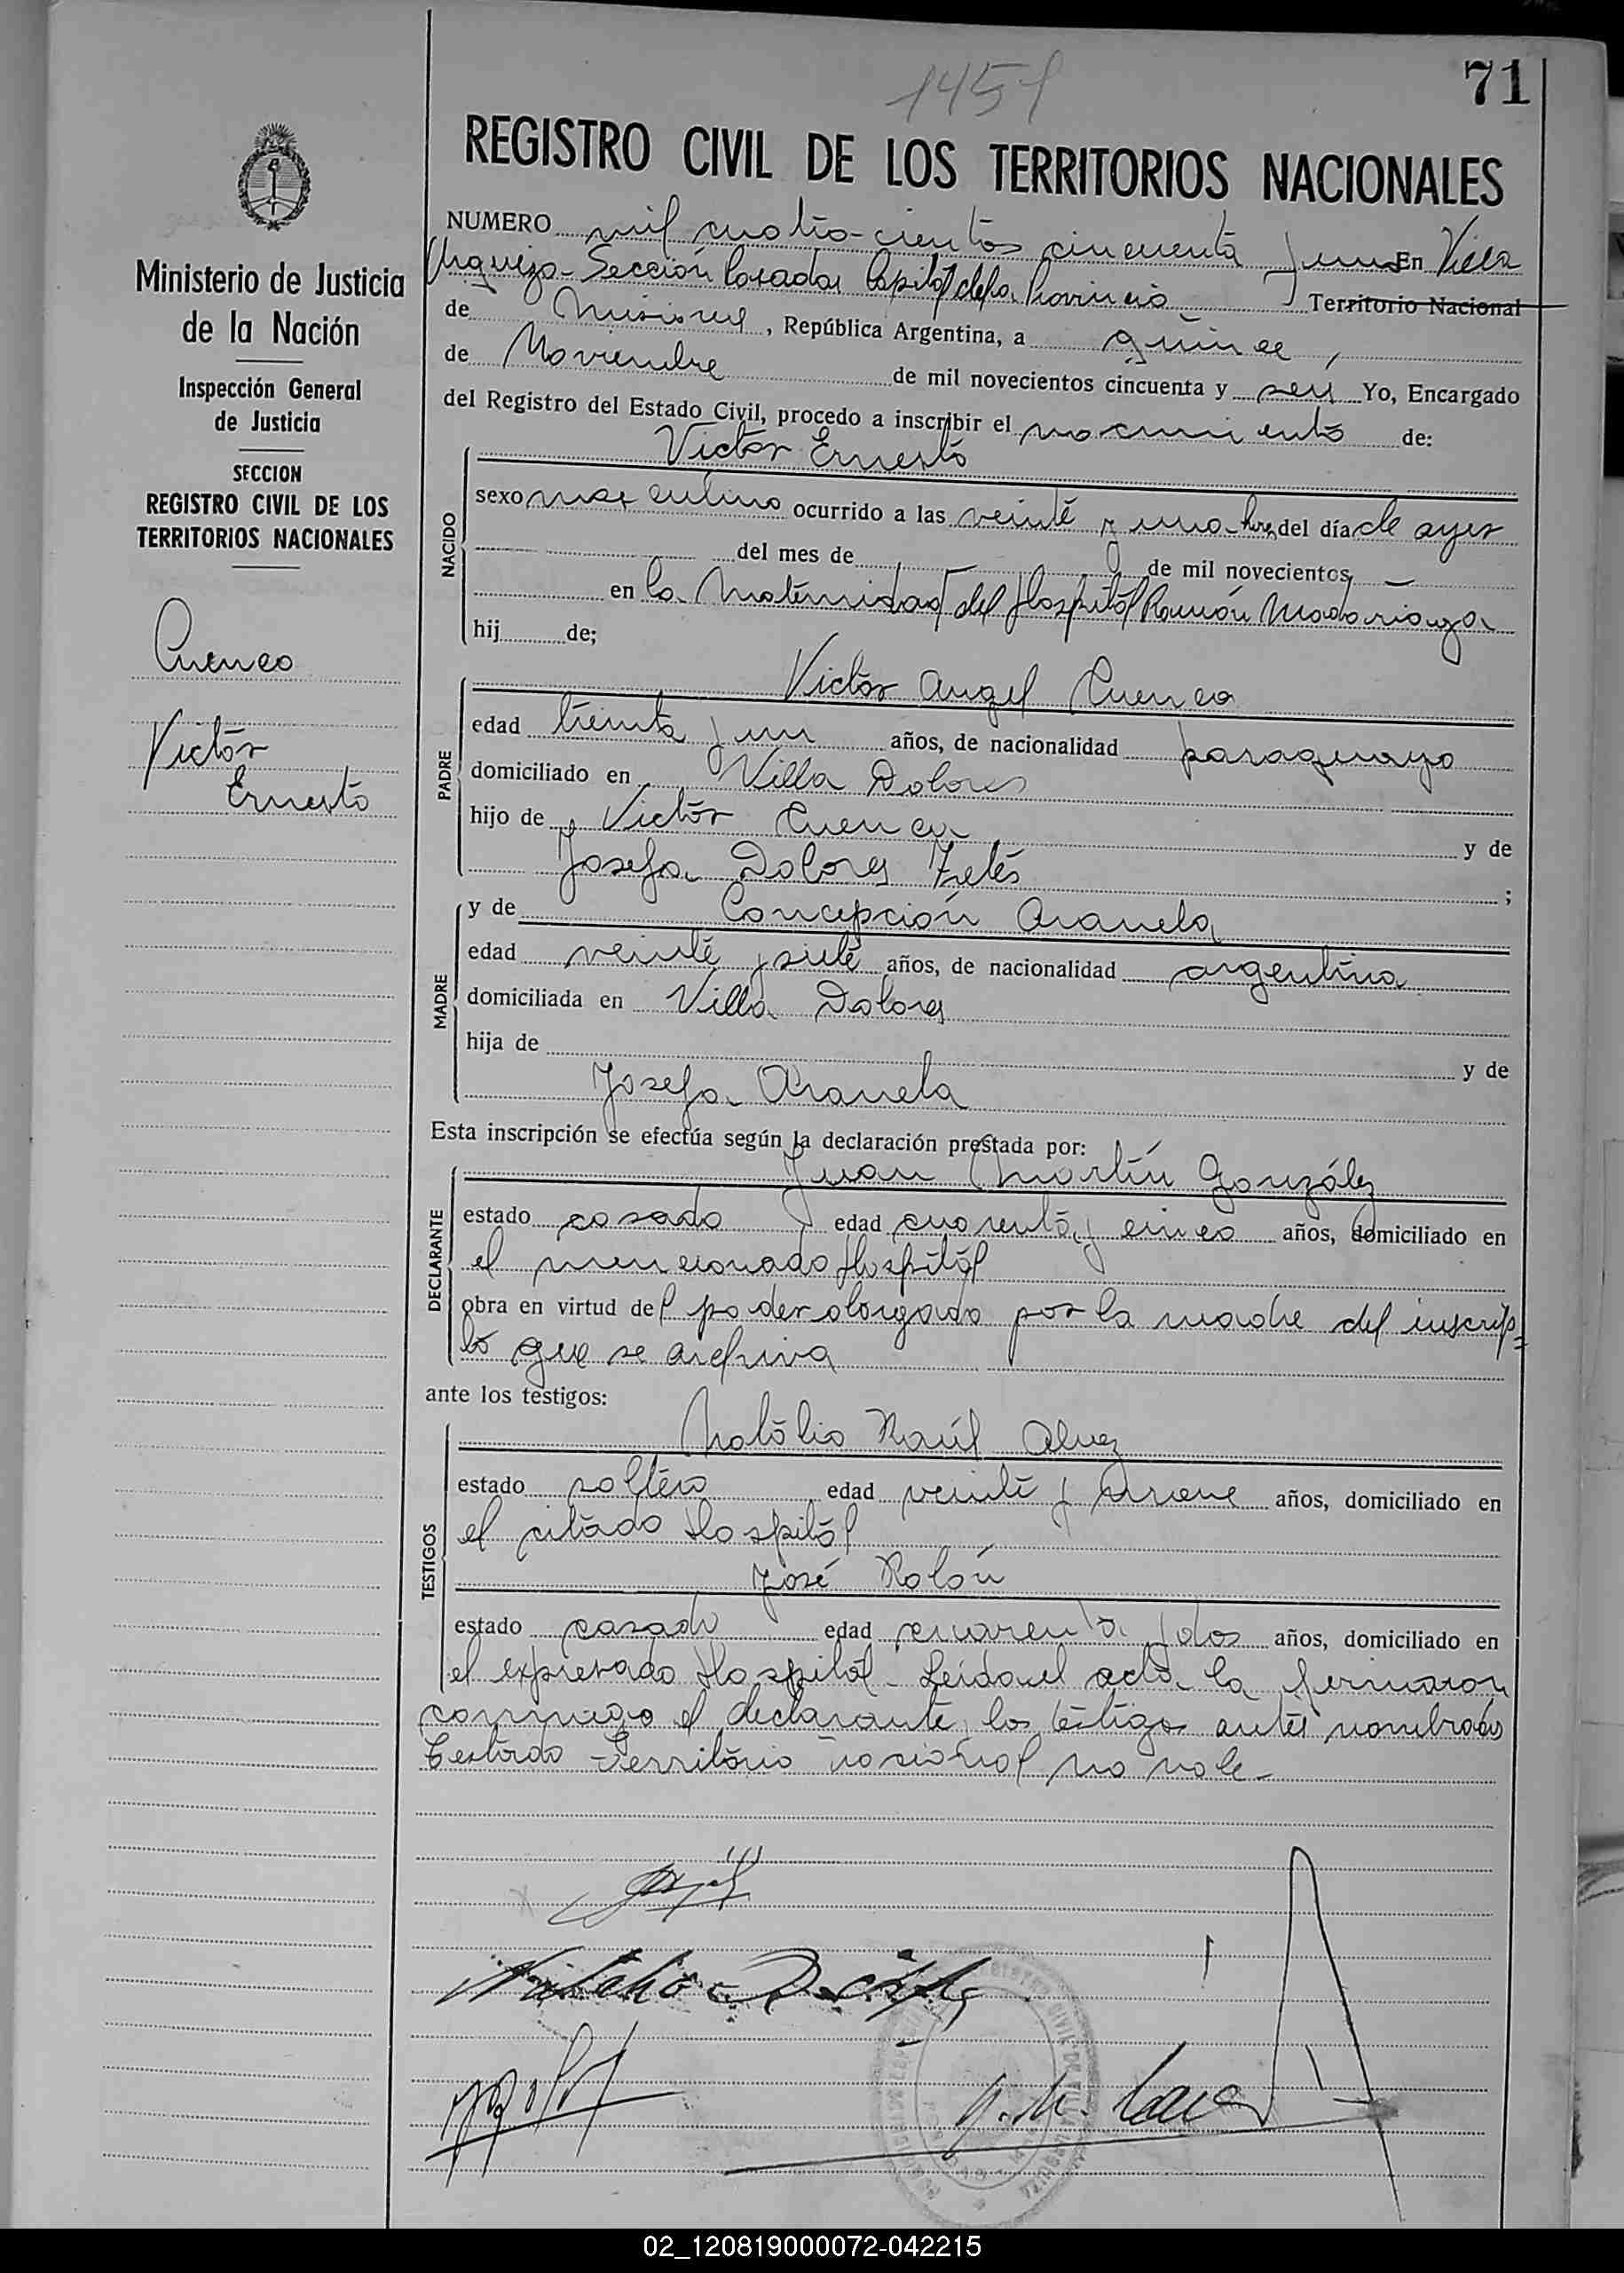 1451
71
REGISTRO CIVIL DE LOS TERRITORIOS NACIONALES
Ministerio de Justicia
de la Nación
Inspección General
de Justicia
SECCION
REGISTRO CIVIL DE LOS
TERRITORIOS NACIONALES
Cuenca
Victor
Ernesto
NUMERO mil cuatro-cientos cincuenta y uno En Villa
Urquiza - Sección Posadas Capital de la Provincia Territorio Nacional
de Misiones, República Argentina, a quince
de Noviembre de mil novecientos cincuenta y seis Yo, Encargado
del Registro del Estado Civil, procedo a inscribir el nacimiento de:
NACIDO
Victor Ernesto
sexo masculino ocurrido a las veinte y uno hs del día de ayer
del mes de de mil novecientos
en la Maternidad del Hospital Ramón Madariaga
hij de;
PADRE
Victor Angel Cuenca
edad treinta y un años, de nacionalidad paraguayo
domiciliado en Villa Dolores
hijo de Victor Cuenca y de
Josefa Dolores ;
MADRE
y de Concepción Aranela
edad veinte y siete años, de nacionalidad argentina
domiciliada en Villa Dolores
hija de y de
Josefa Aranela
Esta inscripción se efectúa según la declaración prestada por:
DECLARANTE
Juan Martín González
estado casado edad cuarenta y cinco años, domiciliado en
el mencionado Hospital
obra en virtud del poder otorgado por la madre del inscrip-
to que se archiva
ante los testigos:
TESTIGOS
Natalio Raúl Alvez
estado soltero edad veinte y nueve años, domiciliado en
el citado Hospital
José Rolón
estado casado edad cuarenta y dos años, domiciliado en
el expresado Hospital - Leída el acta la firmaron
conmigo el declarante y los testigos antes nombrados
Testado Territorio nacional no vale -
02_120819000072-042215